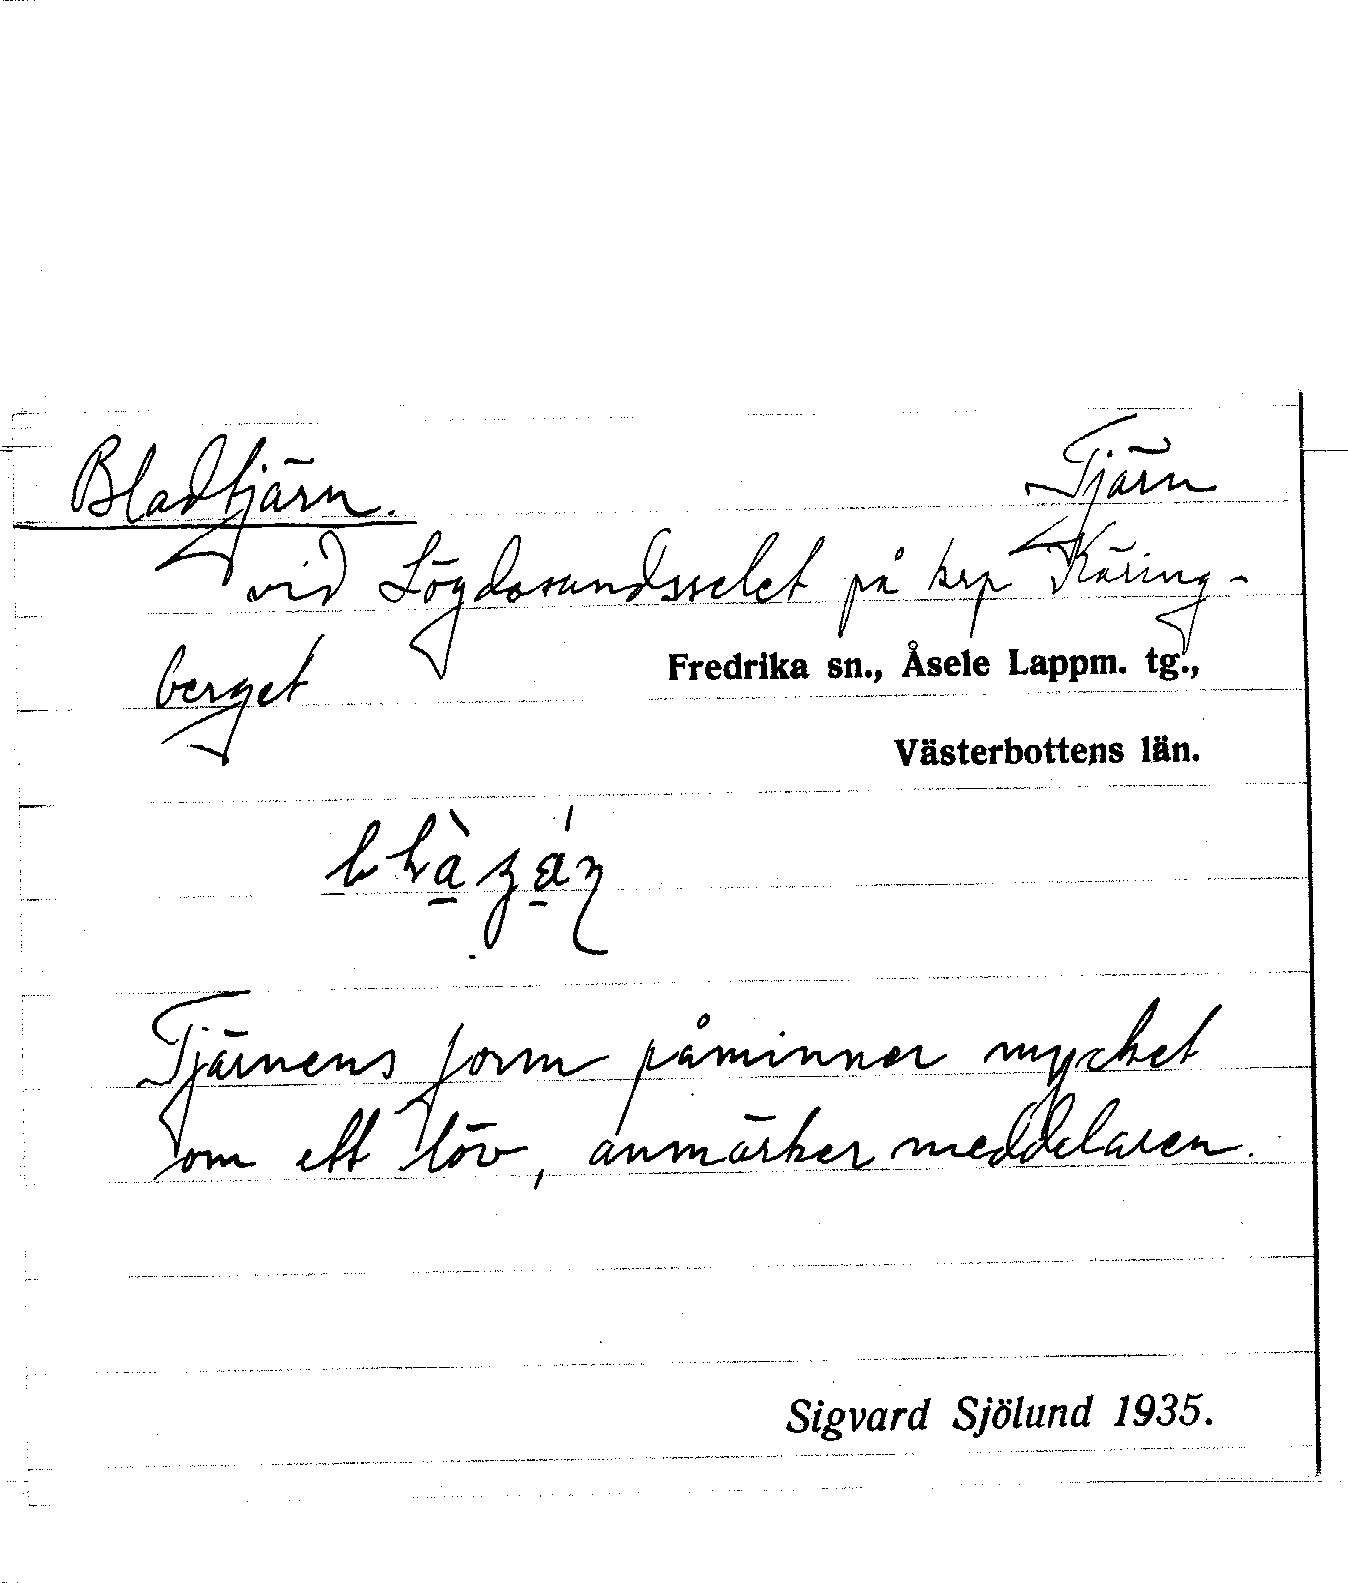 Bladtjärn. Tjärn
vid Lögdosundsselet på krp Käring-
berget Fredrika sn., Åsele Lappm. tg.,
Västerbottens län.
Tjärnens form påminner mycket
om ett löv, anmärker meddelaren.
Sigvard Sjölund 1935.